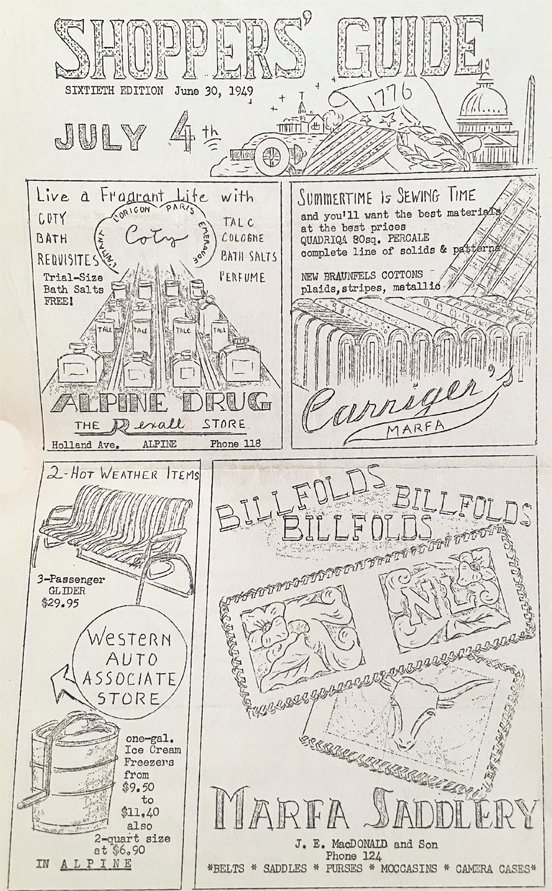 SHOPPERS' GUIDE
SIXTIETH EDITION June 30, 1949
1776
JULY 4th
Live a Fragrant Life with
COTY
BATH
REQUISITES
Trial-Size
Bath Salts
FREE!
L'ORIGON PARIS EMERAUDE
Coty
TALC
COLOGNE
BATH SALTS
PERFUME
TALC TALC TALC TALC
ALPINE DRUG
THE Rexall STORE
Holland Ave. ALPINE Phone 118
SUMMERTIME IS SEWING TIME
and you'll want the best materials
at the best prices
QUADRIQA 80sq. PERCALE
complete line of solids & patterns
NEW BRAUNFELS COTTONS
plaids, stripes, matallic
Carriger's
MARFA
2-HOT WEATHER ITEMS
3-Passenger
GLIDER
$29.95
WESTERN
AUTO
ASSOCIATE
STORE
one-gal.
Ice Cream
Freezers
from
$9.50
to
$11.40
also
2-quart size
at $6.90
IN ALPINE
BILLFOLDS BILLFOLDS
BILLFOLDS
NL
MARFA SADDLERY
J. E. MacDONALD and Son
Phone 124
*BELTS * SADDLES * PURSES * MOCCASINS * CAMERA CASES*